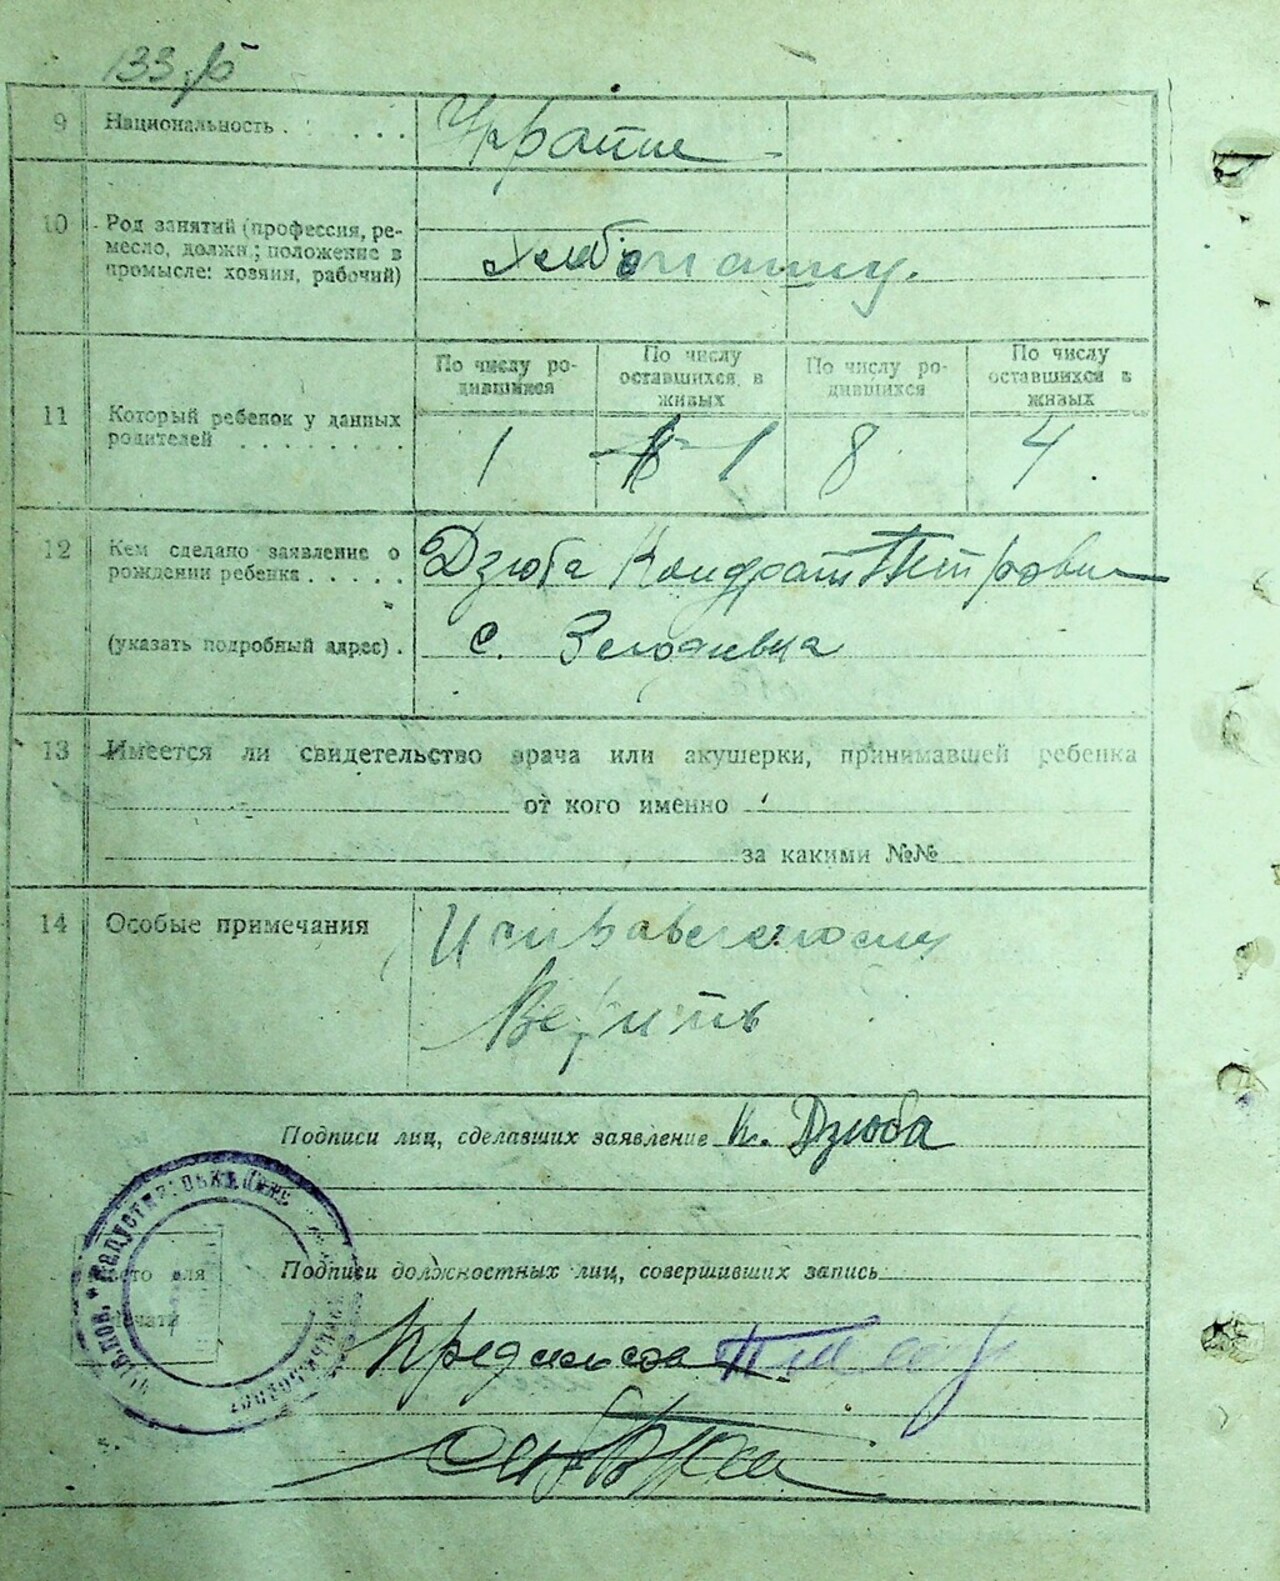 133
9 Национальность . . . . Украинс
10 Род занятий (профессия, ре-
месло, должн.; положение в
промысле: хозяин, рабочий)
11 Который ребенок у данных
родителей . . . . . . .
По числу ро-
дившихся
По числу
оставшихся в
живых
По числу ро-
дившихся
По числу
оставшихся в
живых
1 1 8 4
12 Кем сделано заявление о
рождении ребенка . . . . .
Дзюба Кондрат Петрович
(указать подробный адрес) .
с.
13 Имеется ли свидетельство врача или акушерки, принимавшей ребенка
от кого именно
за какими №№
14 Особые примечания
Исправленному
Верить
Подписи лиц, сделавших заявление К. Дзюба
Место для
печати
Подписи должностных лиц, совершивших запись